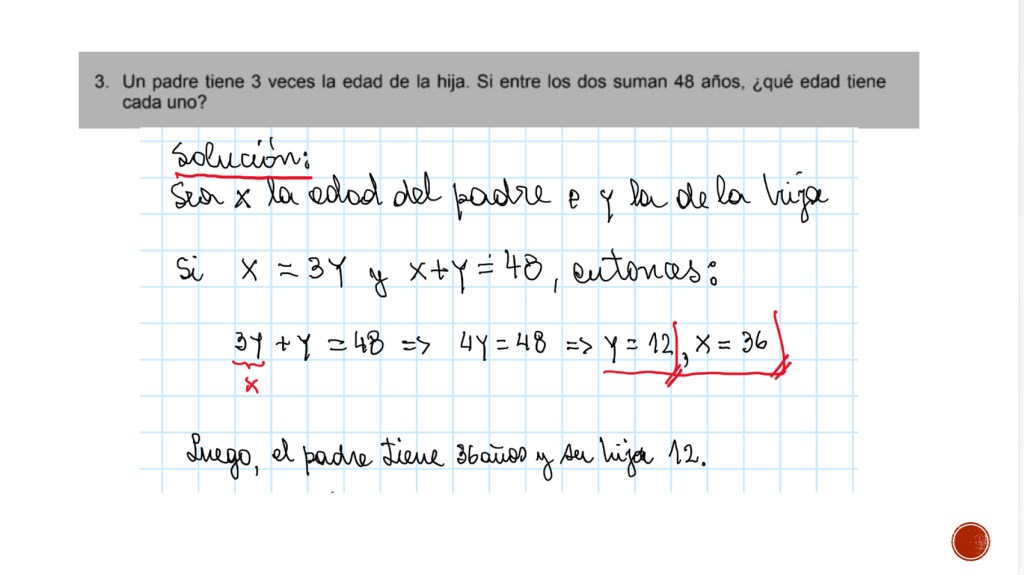 3. Un padre tiene 3 veces la edad de la hija. Si entre los dos suman 48 años, ¿qué edad tiene
cada uno?
Solución:
Sea x la edad del padre e y la de la hija
Si x = 3y y x+y = 48, entonces:
3y + y = 48 => 4y = 48 => y = 12, x = 36
x
Luego, el padre tiene 36 años y su hija 12.